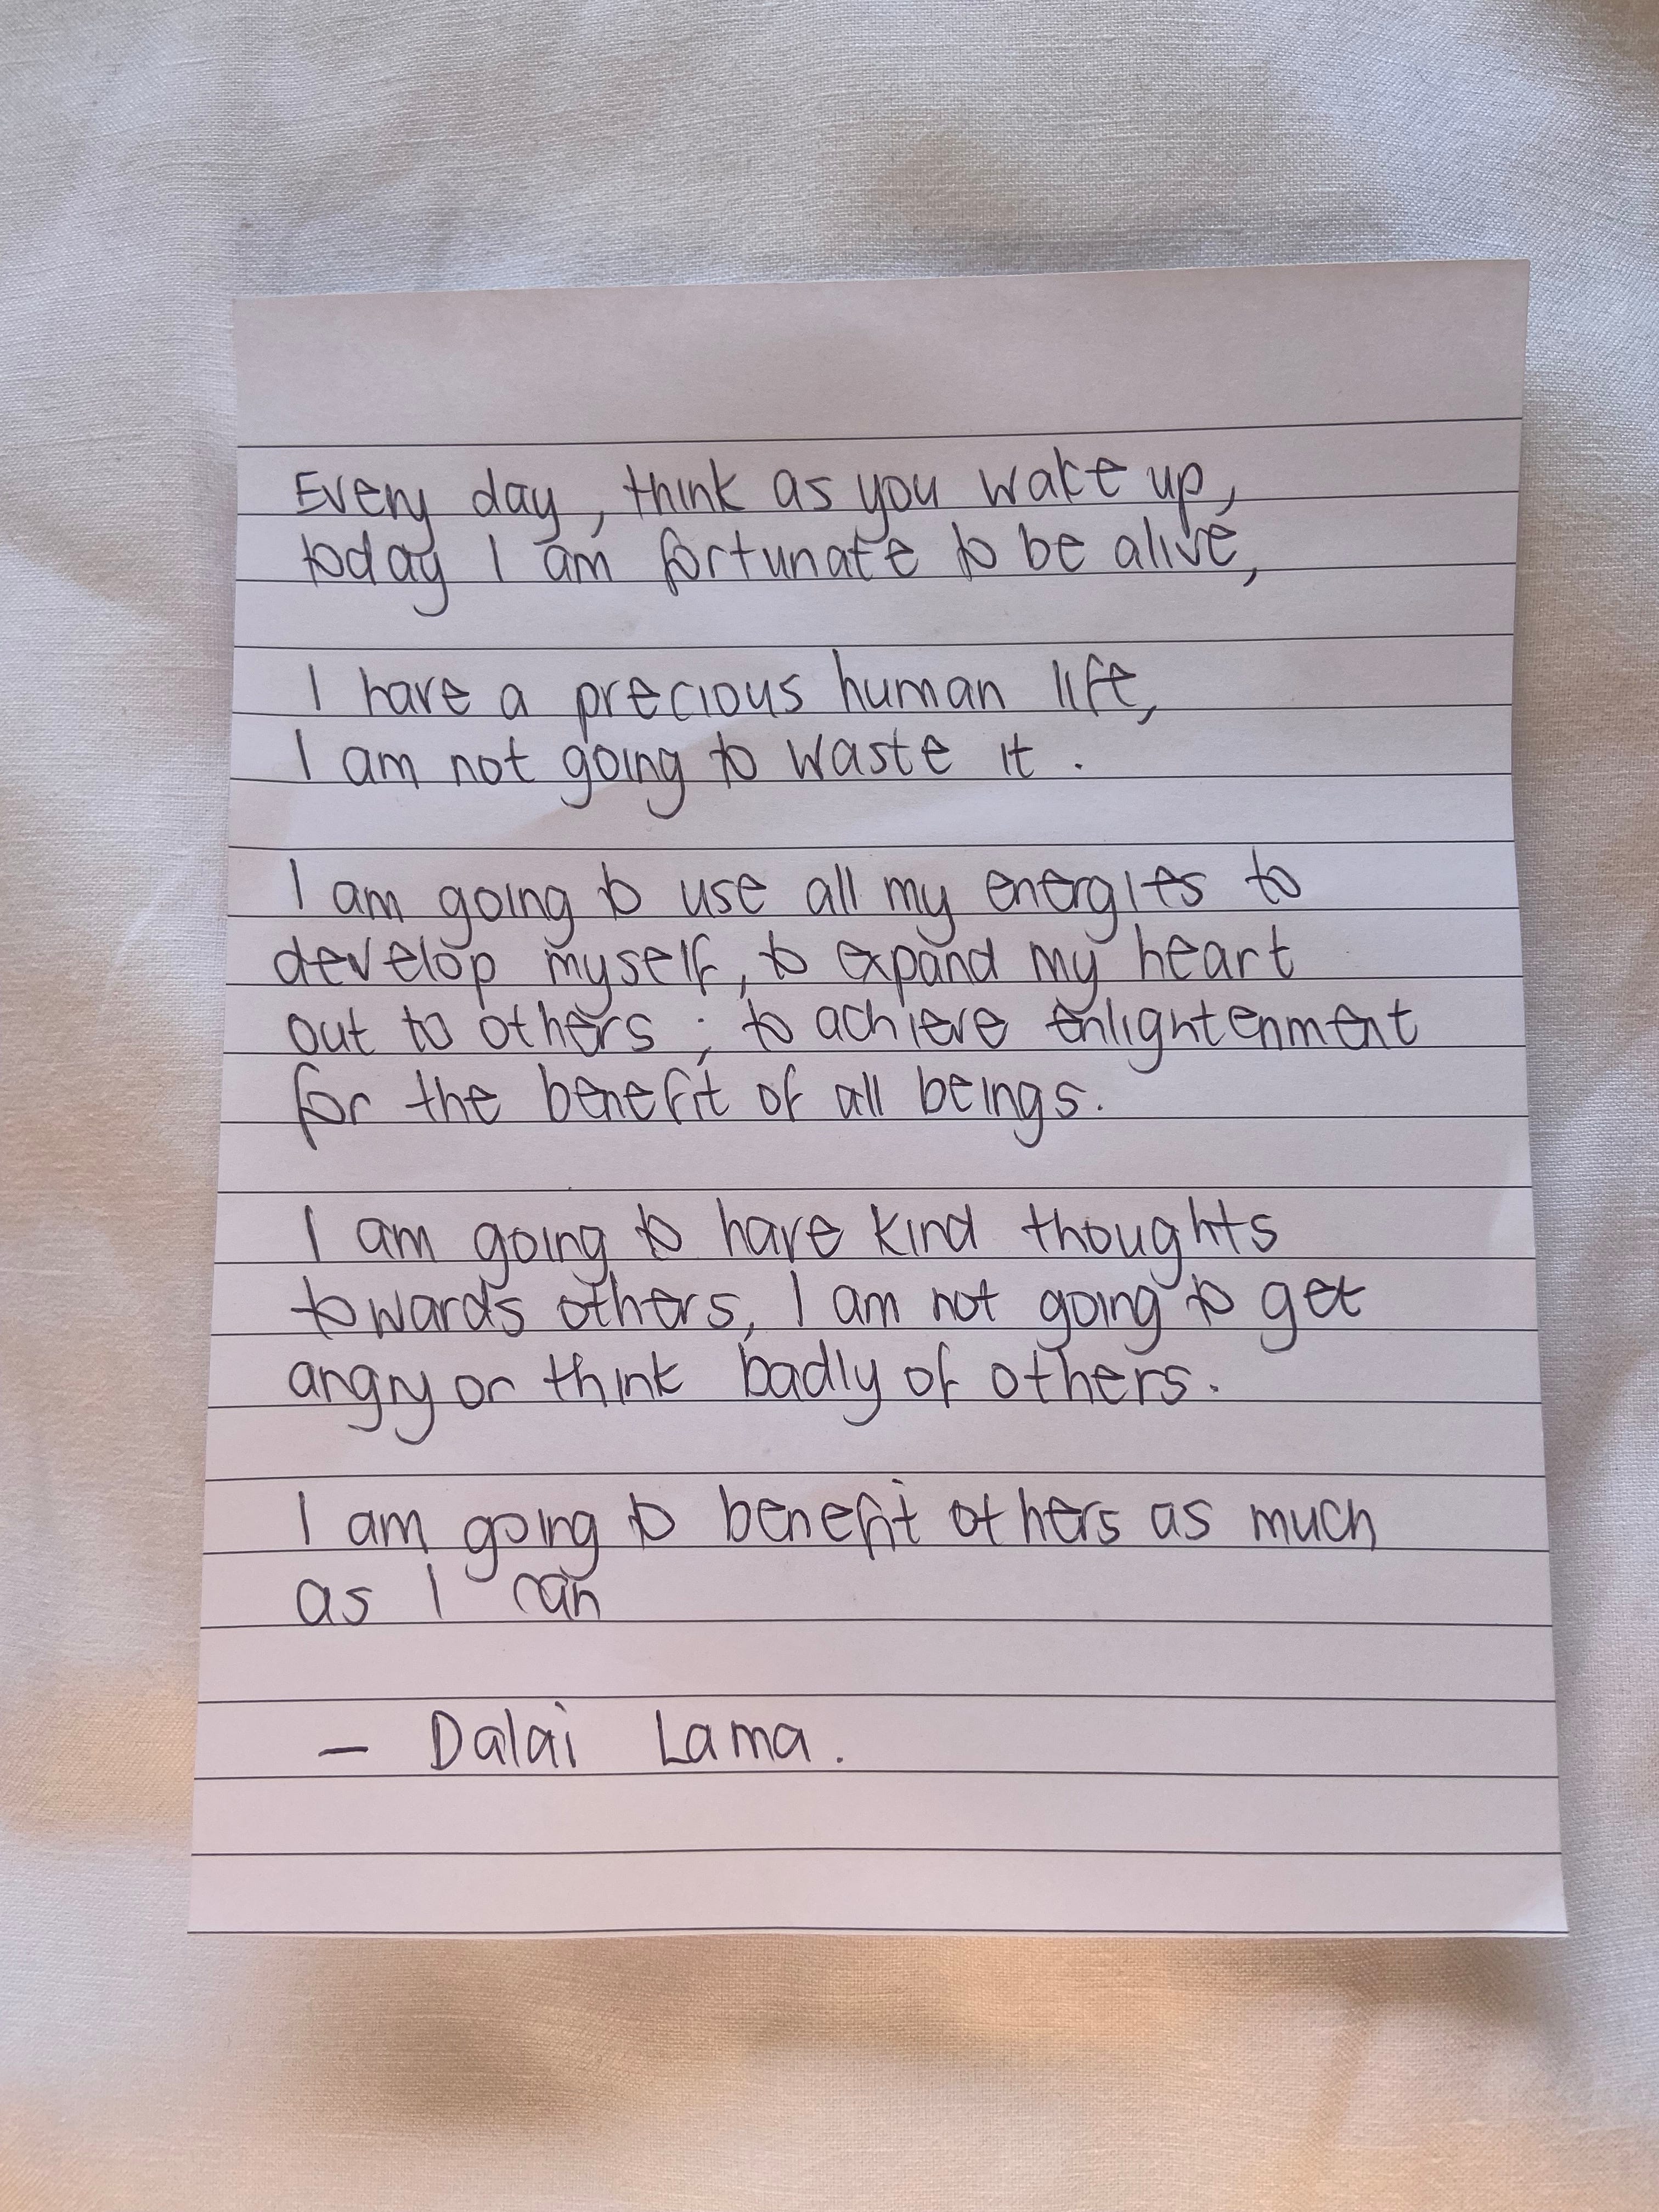 Every day, think as you wake up,
today I am fortunate to be alive,
I have a precious human life,
I am not going to waste it.
I am going to use all my energies to
develop myself, to expand my heart
out to others; to achieve enlightenment
for the benefit of all beings.
I am going to have kind thoughts
towards others, I am not going to get
angry or think badly of others.
I am going to benefit others as much
as I can
— Dalai Lama.